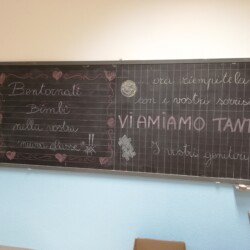 Bentornati
Bimbi
nella vostra
"nuova classe"!!
ora riempitela
con i vostri sorrisi
VI AMIAMO TANT
I vostri genitori